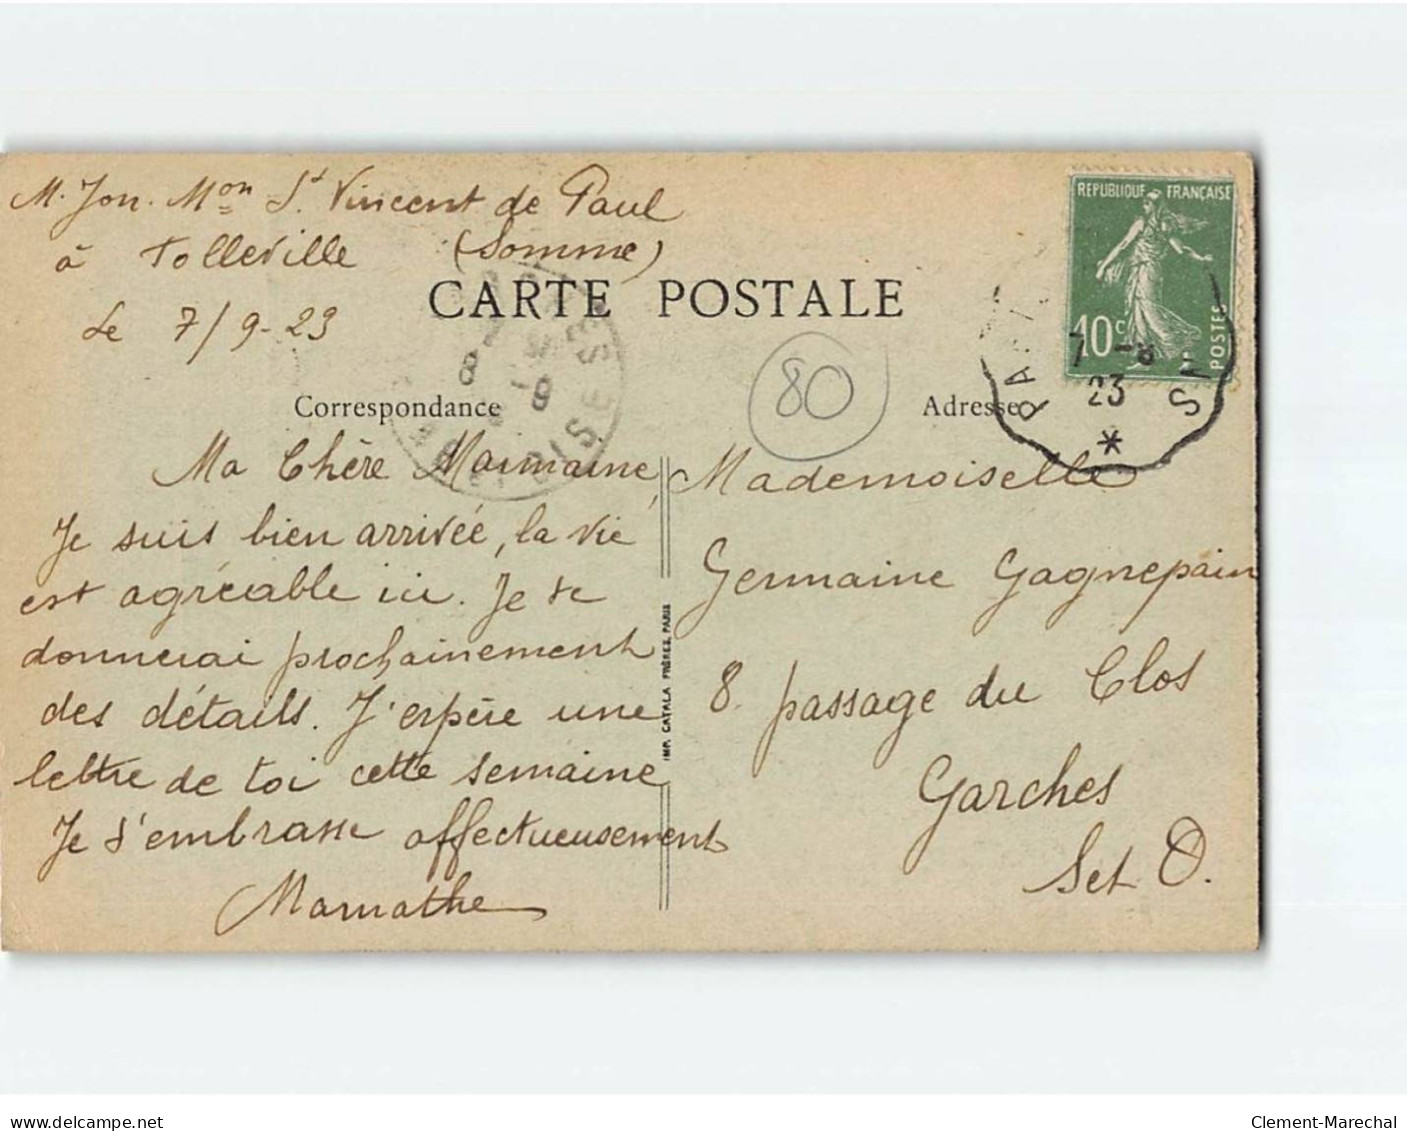 M. Jon. Mon St Vincent de Paul
à Tolleville (Somme)
Le 7/9-23
CARTE POSTALE
REPUBLIQUE FRANÇAISE
10c
POSTES
7 -8
23
80
Correspondance
Adresse
Ma Chère Maimaine,
Je suis bien arrivée, la vie
est agréable ici. Je te
donnerai prochainement
des détails. J'espère une
lettre de toi cette semaine
Je t'embrasse affectueusement
Mamathe
IMP. CATALA FRÈRES, PARIS
Mademoiselle
Germaine Gagnepain
8. passage du Clos
Garches
Set O.
www.delcampe.net
Clement-Marechal